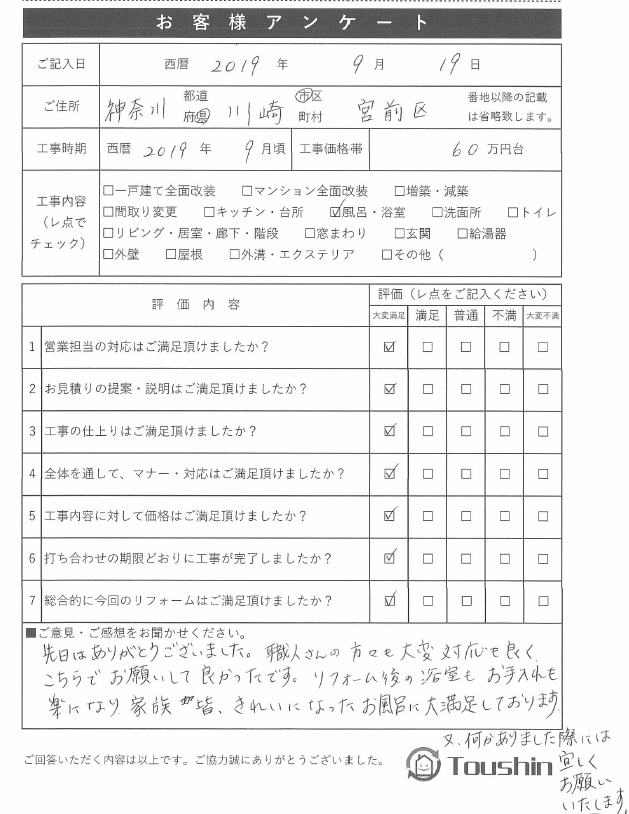 お客様アンケート
ご記入日 西暦 2019 年 9 月 19 日
ご住所 神奈川 都道府県 川崎 市区町村 宮前区 番地以降の記載は省略致します。
工事時期 西暦 2019 年 9 月頃 工事価格帯 60 万円台
工事内容（レ点でチェック）
□一戸建て全面改装 □マンション全面改装 □増築・減築
□間取り変更 □キッチン・台所 ☑風呂・浴室 □洗面所 □トイレ
□リビング・居室・廊下・階段 □窓まわり □玄関 □給湯器
□外壁 □屋根 □外溝・エクステリア □その他（ ）
評価内容 評価（レ点をご記入ください）
大変満足 満足 普通 不満 大変不満
1 営業担当の対応はご満足頂けましたか？ ☑ □ □ □ □
2 お見積りの提案・説明はご満足頂けましたか？ ☑ □ □ □ □
3 工事の仕上りはご満足頂けましたか？ ☑ □ □ □ □
4 全体を通して、マナー・対応はご満足頂けましたか？ ☑ □ □ □ □
5 工事内容に対して価格はご満足頂けましたか？ ☑ □ □ □ □
6 打ち合わせの期限どおりに工事が完了しましたか？ ☑ □ □ □ □
7 総合的に今回のリフォームはご満足頂けましたか？ ☑ □ □ □ □
■ご意見・ご感想をお聞かせください。
先日はありがとうございました。職人さんの方々も大変対応も良く、
こちらでお願いして良かったです。リフォーム後の浴室もお手入れも
楽になり家族皆、きれいになったお風呂に大満足しております。
又、何かありました際には
宜しく
お願い
いたします。
ご回答いただく内容は以上です。ご協力誠にありがとうございました。
Toushin